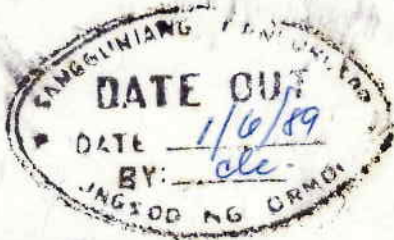 SANGGUNIANG PANLUNGSOD
DATE OUT
DATE 1/6/89
BY:
LUNGSOD NG ORMOC